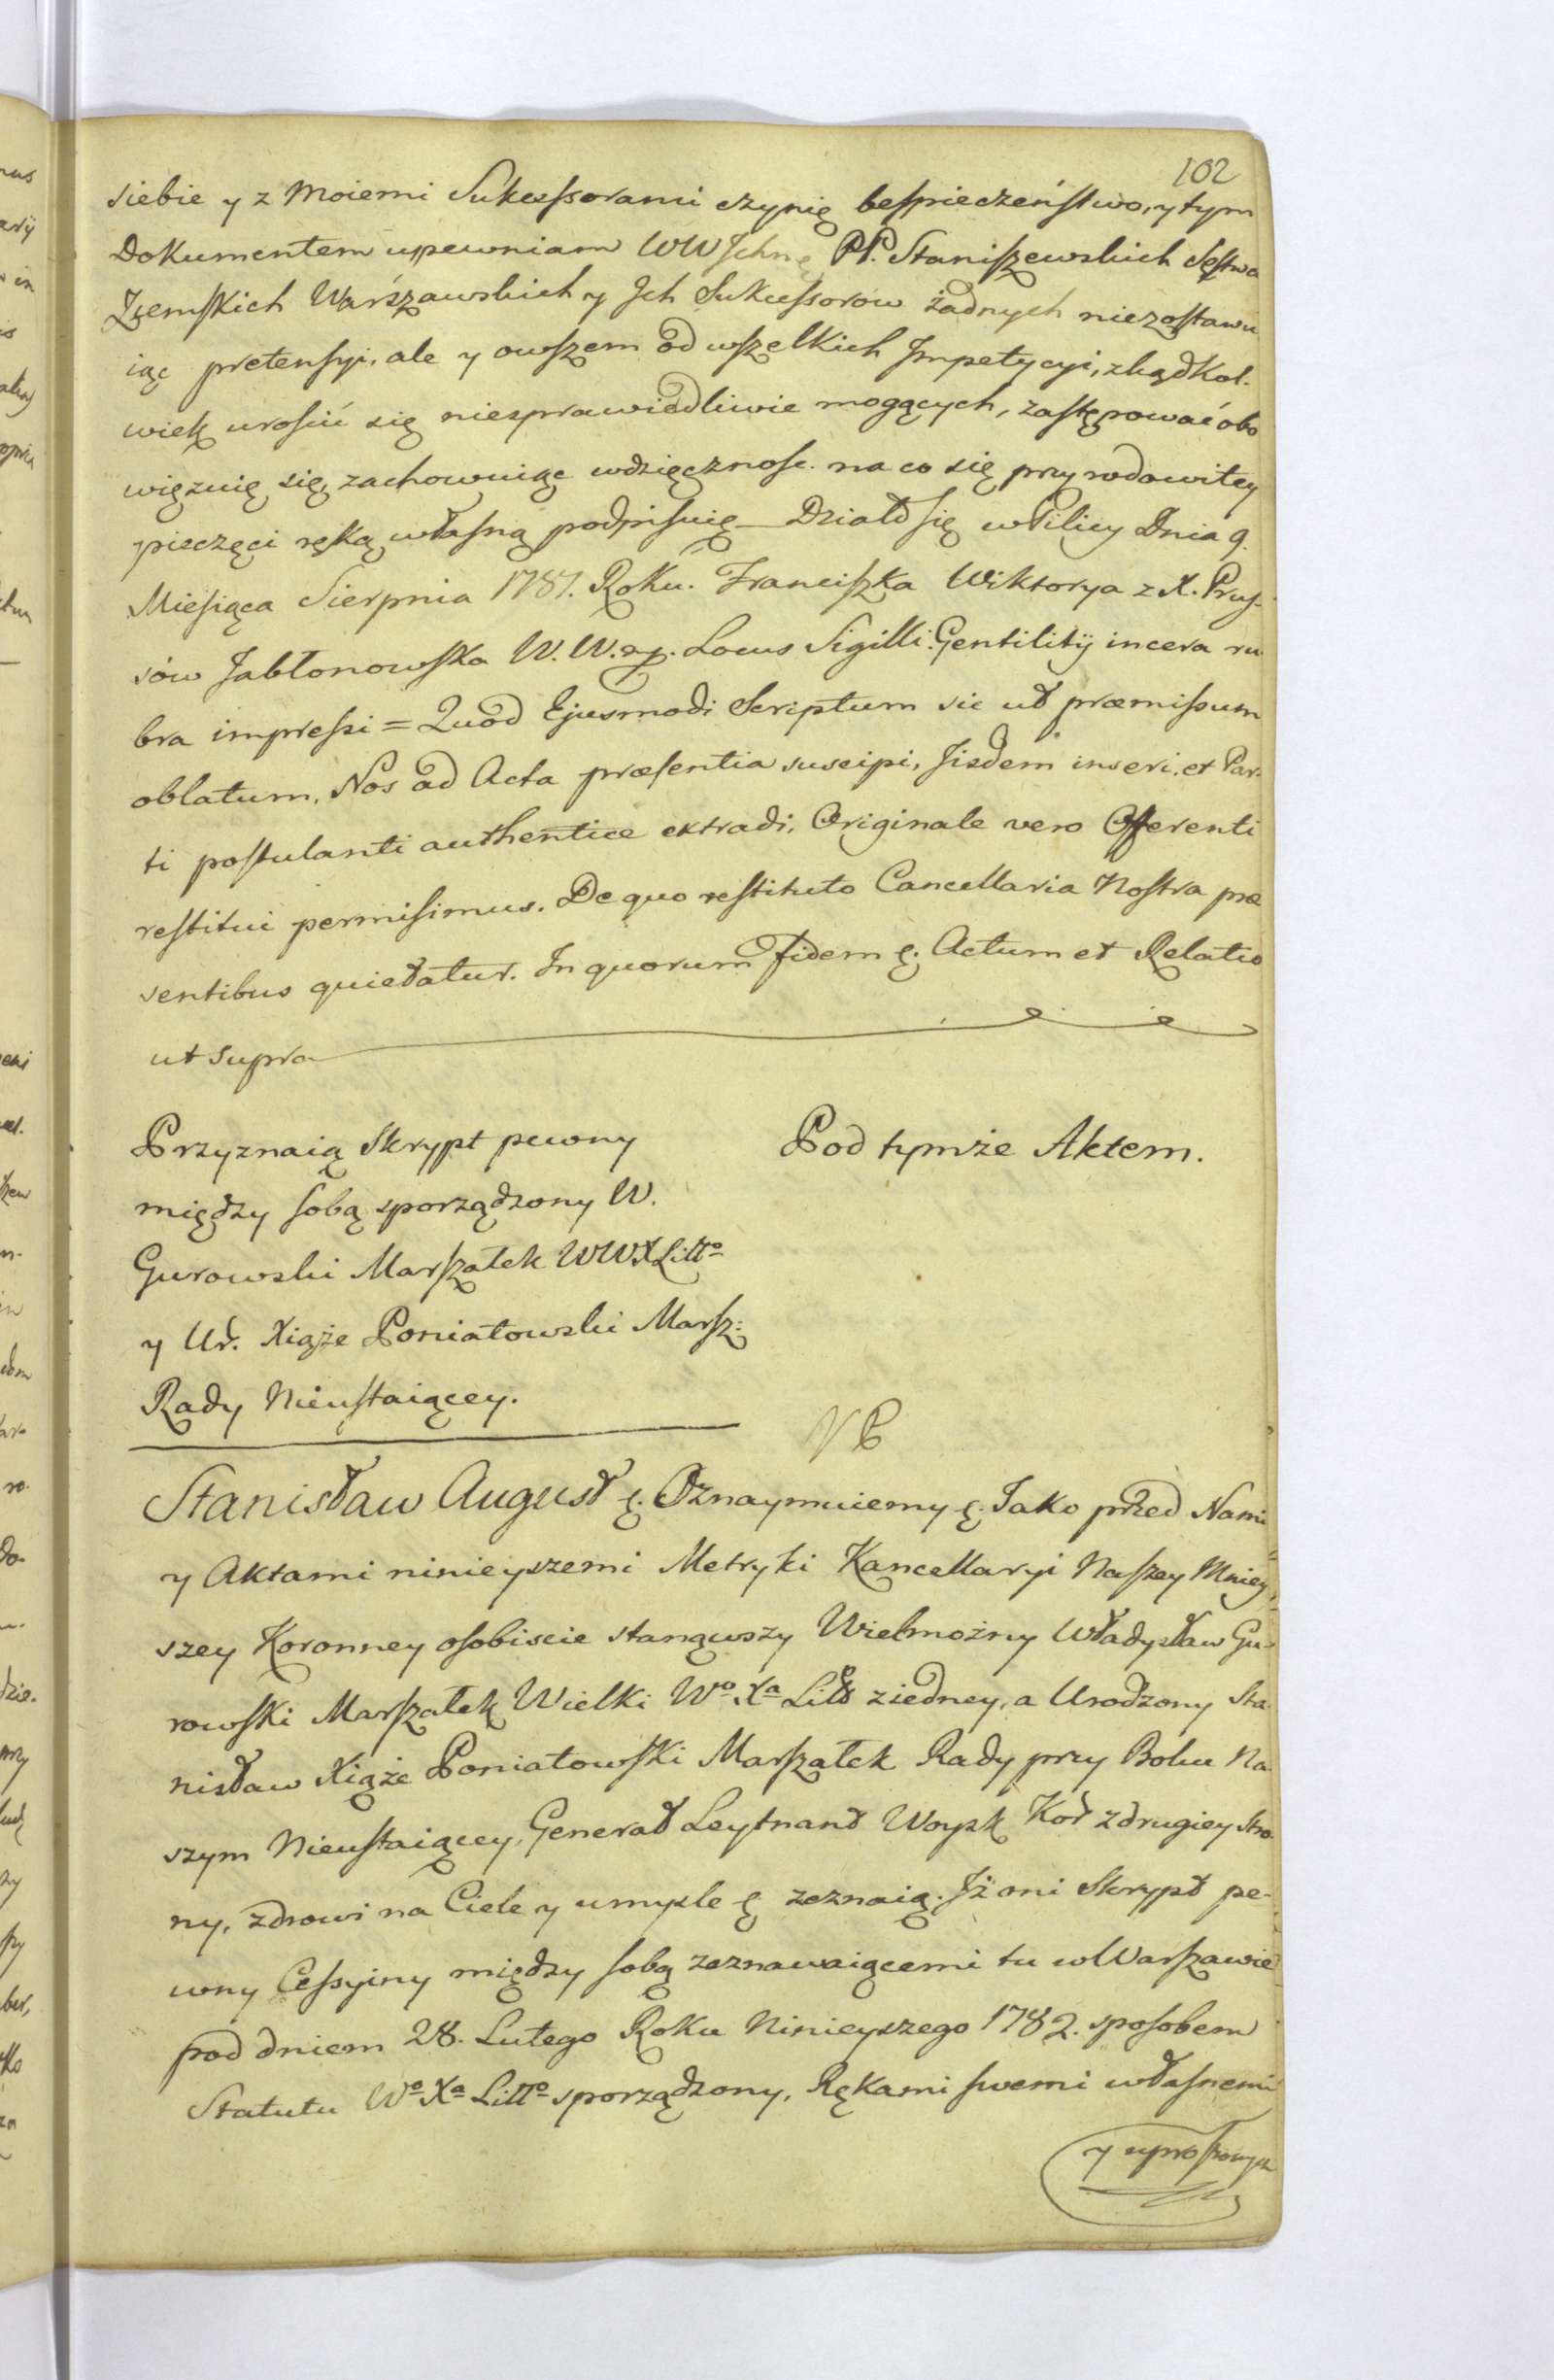 102
siebie y z Moiemi Sukcessorami czynię bespieczeństwo, y tym
Dokumentem upewniam WW Jchm PP. Staniszewskich Sęstwa
Ziemskich Warszawskich y Jch Sukcessorow żadnych niezostawu
iąc pretensyi, ale y owszem od wszelkich Jmpetycyi, zkądkol-
wiek urościć się niesprawiedliwie mogących, zastępować obo
więzuię się, zachowuiąc wdzięcznosc. na co się przy rodowitey
pieczęci ręką własną podpisuię – Działo się w Pilicy Dnia 9.
Miesiąca Sierpnia 1781. Roku. Franciszka Wiktorya z X. Prus-
sów Jabłonowska W. W. Locus Sigilli Gentilitij in cera ru
bra impressi = Quod Ejusmodi Scriptum sic ut præmissum
oblatum, Nos ad Acta præsentia suscipi, Jisdem inseri, et Par-
ti postulanti authentice extradi, Originale vero Offerenti
restitui permisimus. De quo restituto Cancellaria Nostra præ
sentibus quietatur. In quorum Fidem ę. Actum et Relatio
ut supra
Przyznaią Skrypt pewny
między sobą sporządzony W.
Gurowski Marszałek WWXLitto
y Ur. Xiąże Poniatowski Marsz:
Rady Nieustaiącey.
Pod tymże Aktem.
Stanisław August ę. Oznaymuiemy ę. Jako przed Nami
y Aktami ninieyszemi Metryki Kancellaryi Naszey Mniey
szey Koronney osobiscie stanąwszy Wielmożny Władysław Gu-
rowski Marszałek Wielki Wo Xa Litt z iedney, a Urodzony Sta
nisław Xiąże Poniatowski Marszałek Rady przy Boku Na
szym Nieustaiącey, Generał Leytnant Woysk Kor z drugiey stro-
ny, zdrowi na Ciele y umysle ę zeznaią. Jż oni Skrypt pe-
wny Cessyiny między sobą zeznawaiącemi tu w Warszawie
pod dniem 28. Lutego Roku Ninieyszego 1782. sposobem
Statutu Wo Xa Litto sporządzony, Rękami swemi własnemi
y uproszonych